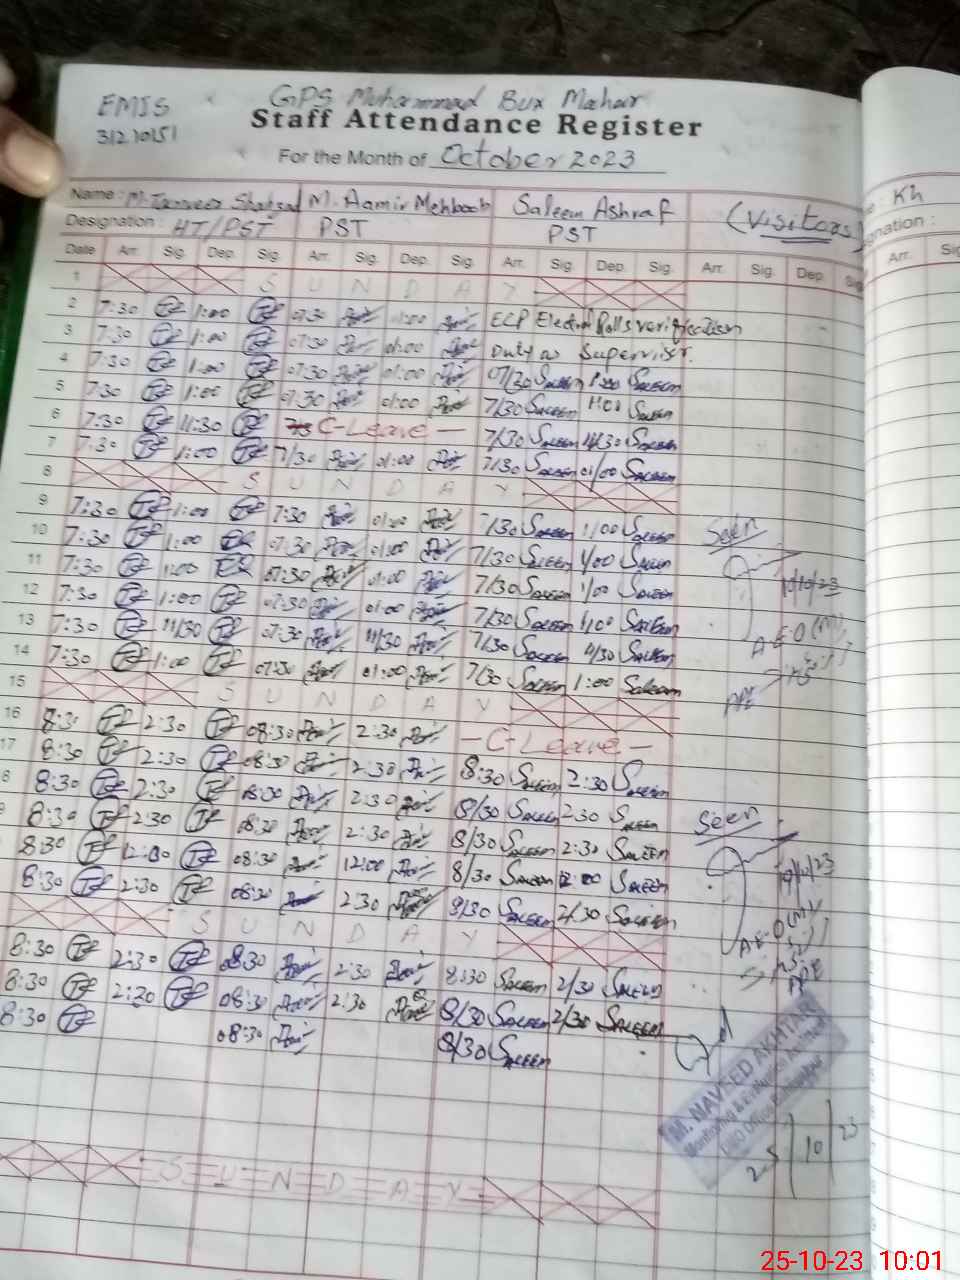 EMIS
31210151
GPS Muhammad Bux Mahar
Staff Attendance Register
For the Month of October 2023
Name : M. Tanveer Shahzad M. Aamir Mehboob Saleem Ashraf (Visitors)
Designation : HT/PST PST PST
Date Arr. Sig. Dep. Sig. Arr. Sig. Dep. Sig. Arr. Sig. Dep. Sig. Arr. Sig. Dep. Sig.
1 S U N D A Y
2 7:30 1:00 07:30 01:00 ECP Electoral Rolls verification
3 7:30 1:00 07:30 01:00 Duty as Supervisor.
4 7:30 1:00 07:30 01:00 07/30 Saleem 1:00 Saleem
5 7:30 1:00 07:30 01:00 7/30 Saleem 1:00 Saleem
6 7:30 11:30 C-Leave 7/30 Saleem 11/30 Saleem
7 7:30 1:00 7/30 01:00 7/30 Saleem 01/00 Saleem
8 S U N D A Y
9 7:30 1:00 7:30 01:00 7/30 Saleem 1/00 Saleem Seen
10 7:30 1:00 07:30 01:00 7/30 Saleem 1/00 Saleem
11 7:30 1:00 07:30 01:00 7/30 Saleem 1/00 Saleem 10/10/23
12 7:30 1:00 07:30 01:00 7/30 Saleem 1/00 Saleem
13 7:30 11/30 07:30 11/30 7/30 Saleem 11/30 Saleem A.E.O (M)
14 7:30 1:00 07:30 01:00 7/30 Saleem 1:00 Saleem
15 S U N D A Y
16 8:30 2:30 08:30 2:30 C-Leave
17 8:30 2:30 08:30 2:30 8:30 Saleem 2:30 Saleem
8:30 2:30 08:30 2:30 8/30 Saleem 2:30 Saleem Seen
8:30 2:30 08:30 2:30 8/30 Saleem 2:30 Saleem
8:30 12:00 08:30 12:00 8/30 Saleem Saleem
8:30 2:30 08:30 2:30 8/30 Saleem 2/30 Saleem
S U N D A Y A.E.O (M)
8:30 2:30 08:30 2:30 8:30 Saleem 2/30 Saleem
8:30 2:30 08:30 2:30 8/30 Saleem 2/30 Saleem
8:30 08:30 8/30 Saleem
M. NAVEED AKHTAR
Monitoring & Evaluation
25/10/23
S U N D A Y
Kh
gnation :
Arr. Sig
25-10-23 10:01